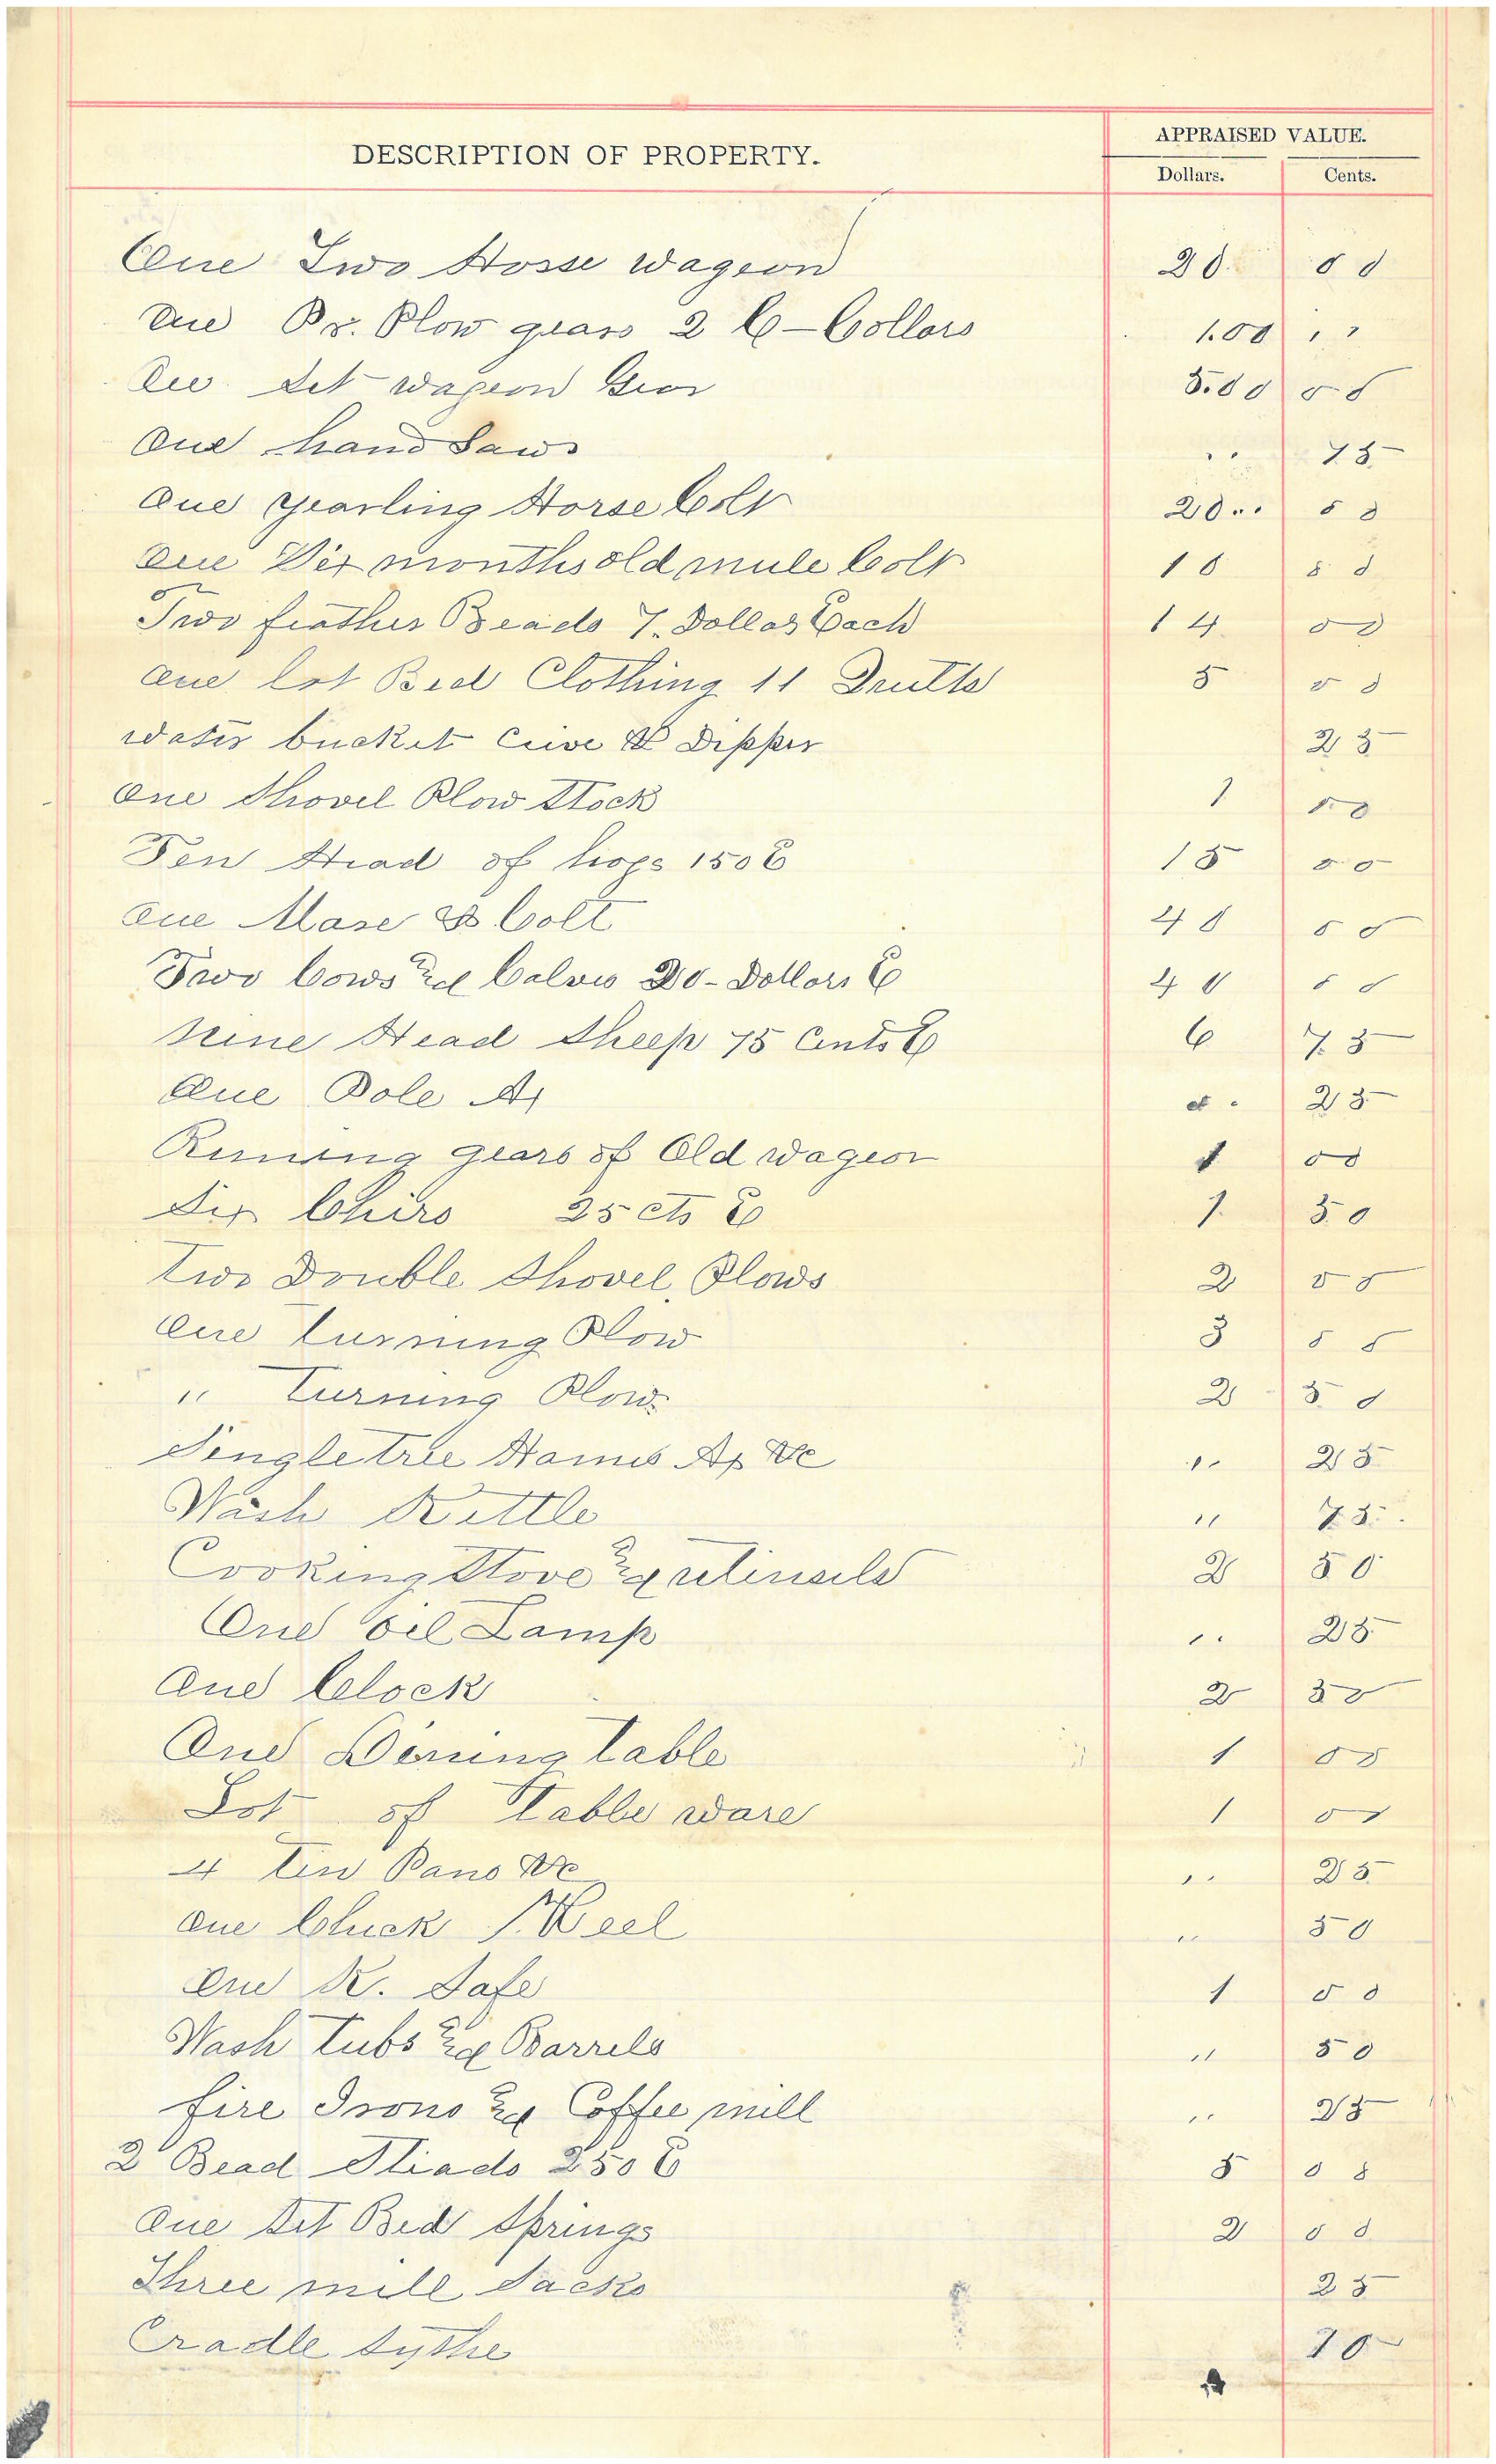 DESCRIPTION OF PROPERTY. APPRAISED VALUE.
Dollars. Cents.
One Two Horse Wageon 20. 00
One Pr. Plow gears 2 C-Collars 1.00 ,,
One Set wageon Gear 5.00 00
One hand Saw ,, 75
One yearling Horse Colt 20.. 00
One Six months old mule Colt 10 00
Two feather Beads 7. Dollas Each 14. 00
One lot Bed Clothing 11 5 00
water bucket & Dipper 25
One Shovel Plow Stock 1 00
Ten Head of hogs 150 E 15 00
One Mare & Colt 40 00
Two Cows and Calvs 20- Dollars E 40 00
Nine Head Sheep 75 Cents E 6 75
One Pole Ax .. 25
Runing gears of Old wageon 1 00
Six Chirs 25 cts E 1. 50
Two Double Shovel Plows 2 00
One Turning Plow 3 00
" Turning Plow. 2 50
Singletree Hames Ax &c ,, 25
Wash Kettle " 75.
Cooking Stove and utinsils 2 50
One Oil Lamp ,, 25
One Clock 2 50
One Dining table 1 00
Lot of Table ware 1 00
4 Tin Pans &c ,, 25
One Chuck Reel ,, 50
One K. Safe 1 00
Wash Tubs and Barrels " 50
fire Irons and Coffee mill ,, 25
2 Bead Steads 250 E 5 00
One Set Bed Springs 2 00
Three mill Sacks 25
Cradle Sythe 10